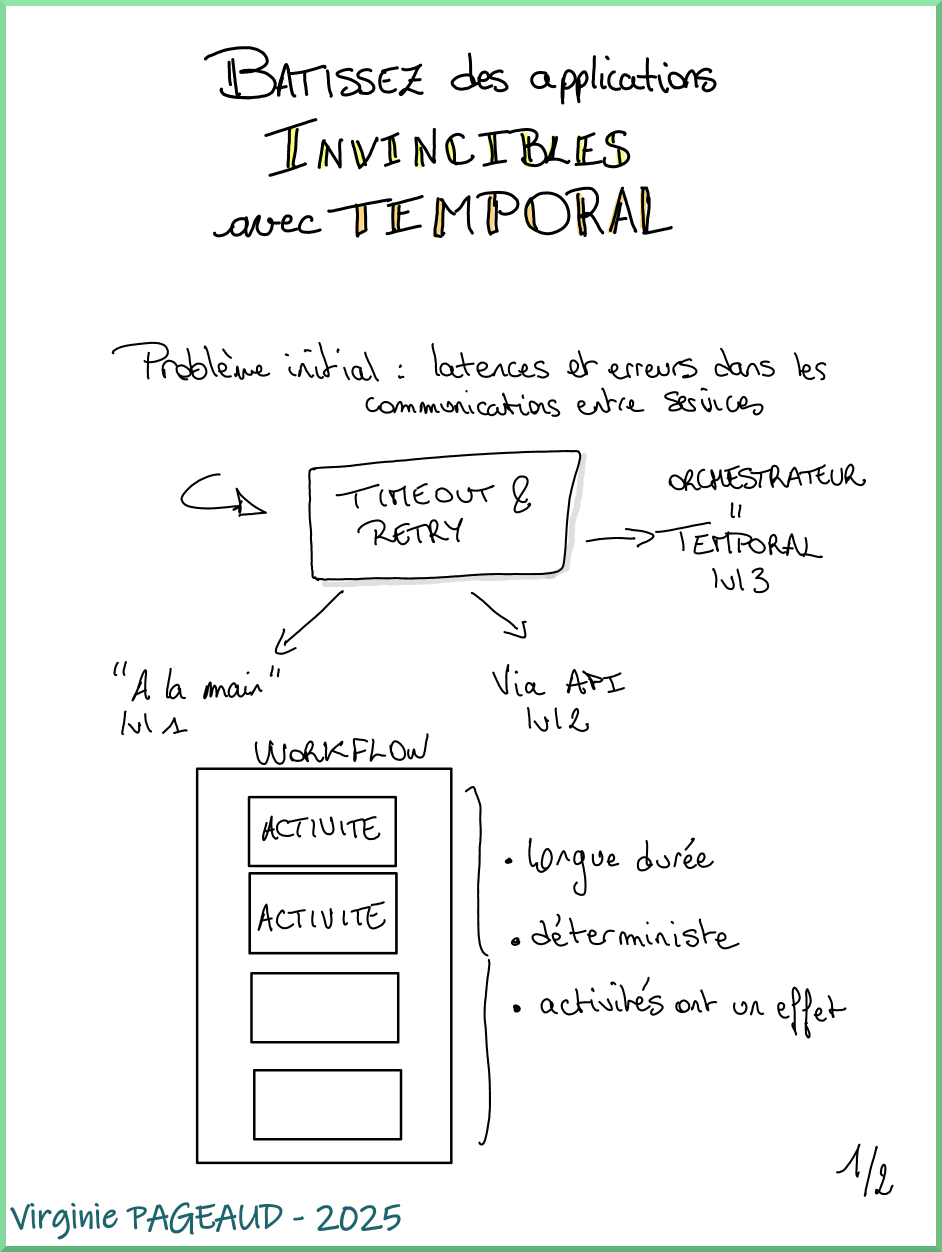 BATISSEZ des applications
INVINCIBLES
avec TEMPORAL
Problème initial : latences et erreurs dans les
communications entre services
TIMEOUT &
RETRY
ORCHESTRATEUR
"
TEMPORAL
lvl 3
"A la main"
lvl 1
Via API
lvl 2
WORKFLOW
ACTIVITE
ACTIVITE
• longue durée
• déterministe
• activités ont un effet
1/2
Virginie PAGEAUD - 2025